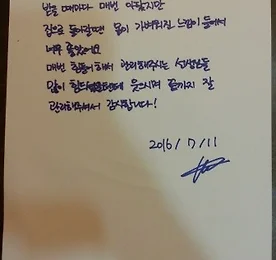 받을 때마다 매번 아팠지만
집으로 돌아갈땐 몸이 가벼워진 느낌이 들어서
너무 좋았어요
매번 힘들어해서 관리해주시는 선생님들
많이 힘드셨을텐데 웃으시며 끝까지 잘
관리해주셔서 감사합니다!
2016 / 7 / 11